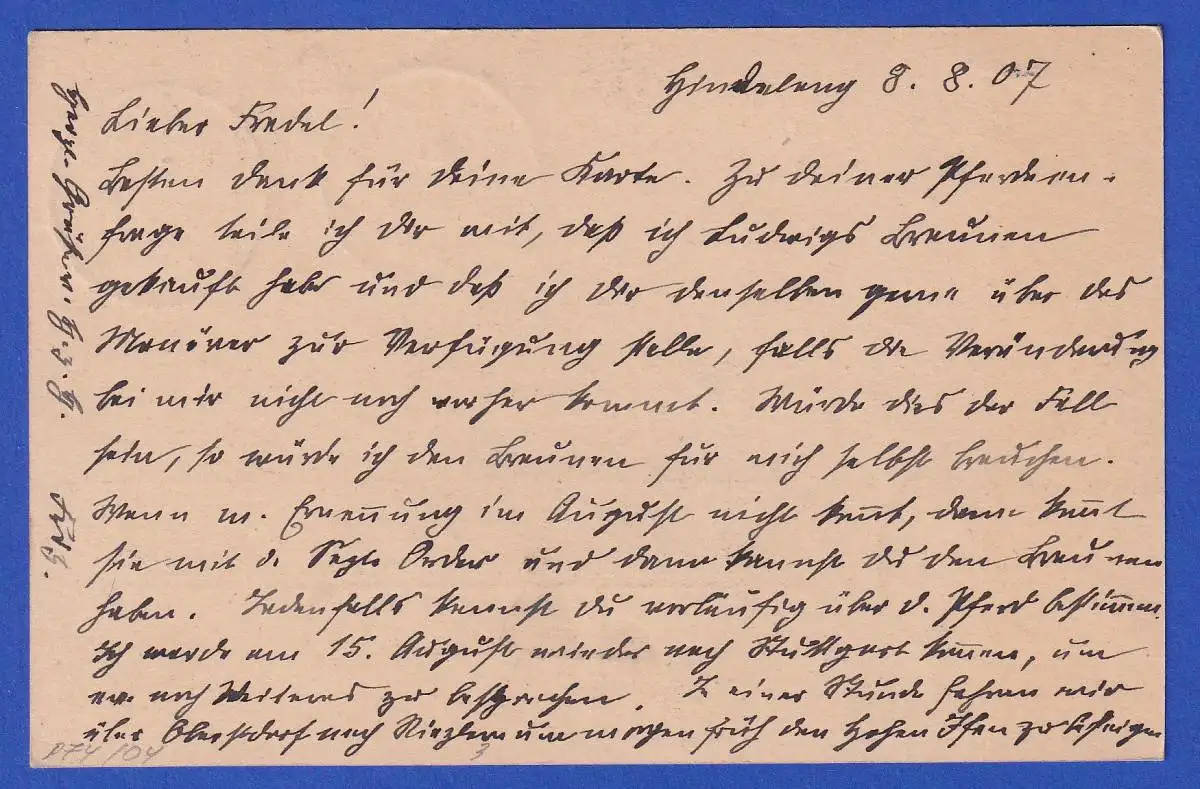 Hindelang 8. 8. 07
Lieber Fredel!
Besten Dank für Deine Karte. Zu Deiner Pferdeen-
frage teile ich Dir mit, daß ich Ludwigs Braunen
gekauft habe und daß ich Dir denselben gerne über das
Manöver zur Verfügung stelle, falls die Veränderung
bei mir nicht noch vorher kommt. Würde dies der Fall
sein, so würde ich den Braunen für mich selbst brauchen.
Wenn m. Ernennung im August nicht komt, dann komt
sie mit d. Sept. Order und dann kannst du den Braunen
haben. Jedenfalls kannst Du vorläufig über d. Pferd bestimmen.
Ich werde am 15. August wieder nach Stuttgart kommen, um
ev. noch Weiteres zu besprechen. In einer Stunde fahren wir
über Oberstdorf nach Riezlern um morgen früh den Hohen Ifen zu besteigen
Herzl. Grüße v. H. z. H.
Fritz.
D74/04
3